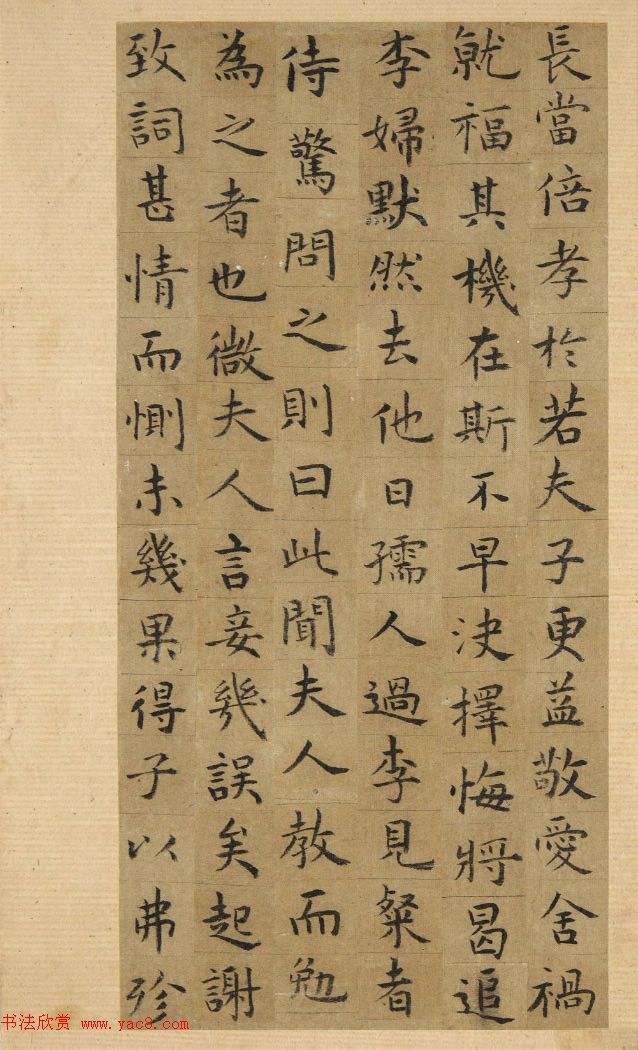 長當倍孝於若夫子更益敬愛舍禍
就福其機在斯不早決擇悔將曷追
李婦默然去他日孺人過李見粲者
侍驚問之則曰此聞夫人教而勉
為之者也微夫人言妾幾誤矣起謝
致詞甚情而惻未幾果得子以弗殄
书法欣赏 www.yac8.com